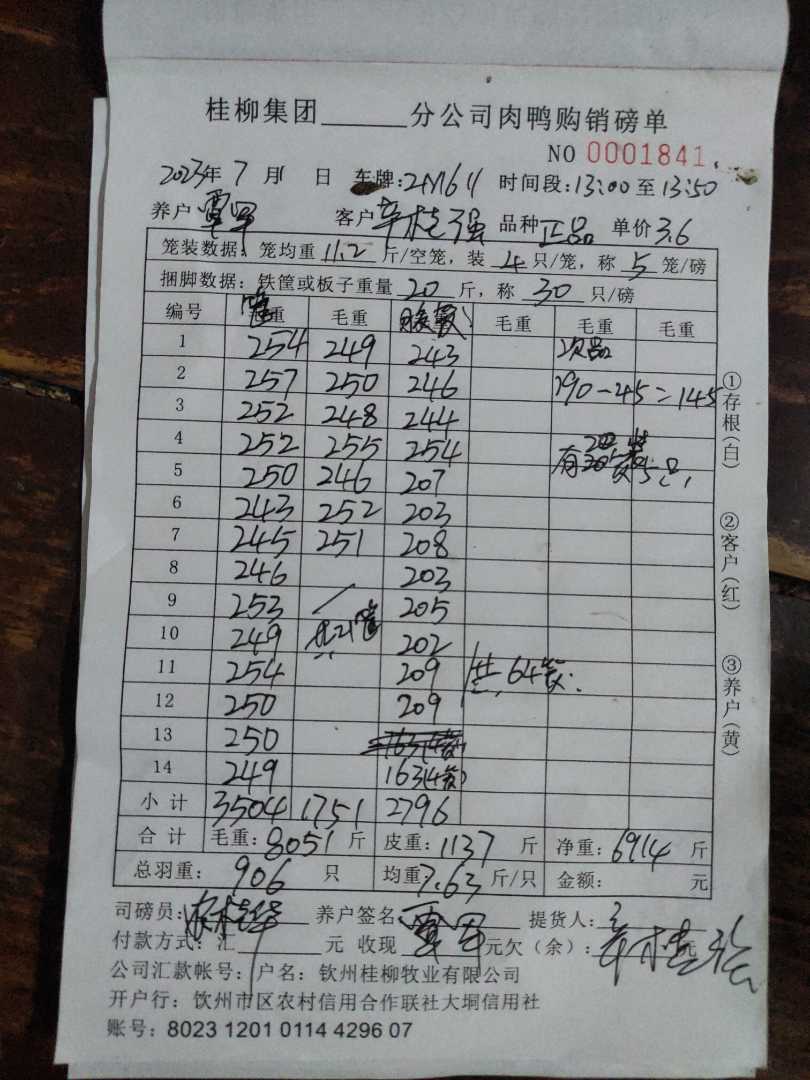 桂柳集团______分公司肉鸭购销磅单
NO 0001841
2023年 7 月 1 日 车牌: 2M64 时间段: 13:00 至 13:50
养户 覃军 客户 桂强 品种 正品 单价 3.6
笼装数据: 笼均重 11.2 斤/空笼, 装 4 只/笼, 称 5 笼/磅
捆脚数据: 铁筐或板子重量 20 斤, 称 30 只/磅
编号 毛重 毛重 毛重 毛重 毛重
1 254 249 243 次品
2 257 250 246 190-45=145
3 252 248 244
4 252 255 254
5 250 246 207 有 5只
6 243 252 203
7 245 251 208
8 246 203
9 253 205
10 249 共21筐 202
11 254 209 共64笼
12 250 209
13 250
14 249 163(4笼)
小计 3504 1751 2796
合计 毛重: 8051 斤 皮重: 1137 斤 净重: 6914 斤
总羽重: 906 只 均重: 7.63 斤/只 金额: 元
司磅员: 养户签名: 覃军 提货人:
付款方式: 汇______元 收现______元欠(余): 元
公司汇款帐号: 户名: 钦州桂柳牧业有限公司
开户行: 钦州市区农村信用合作联社大垌信用社
账号: 8023 1201 0114 4296 07
①存根(白)
②客户(红)
③养户(黄)